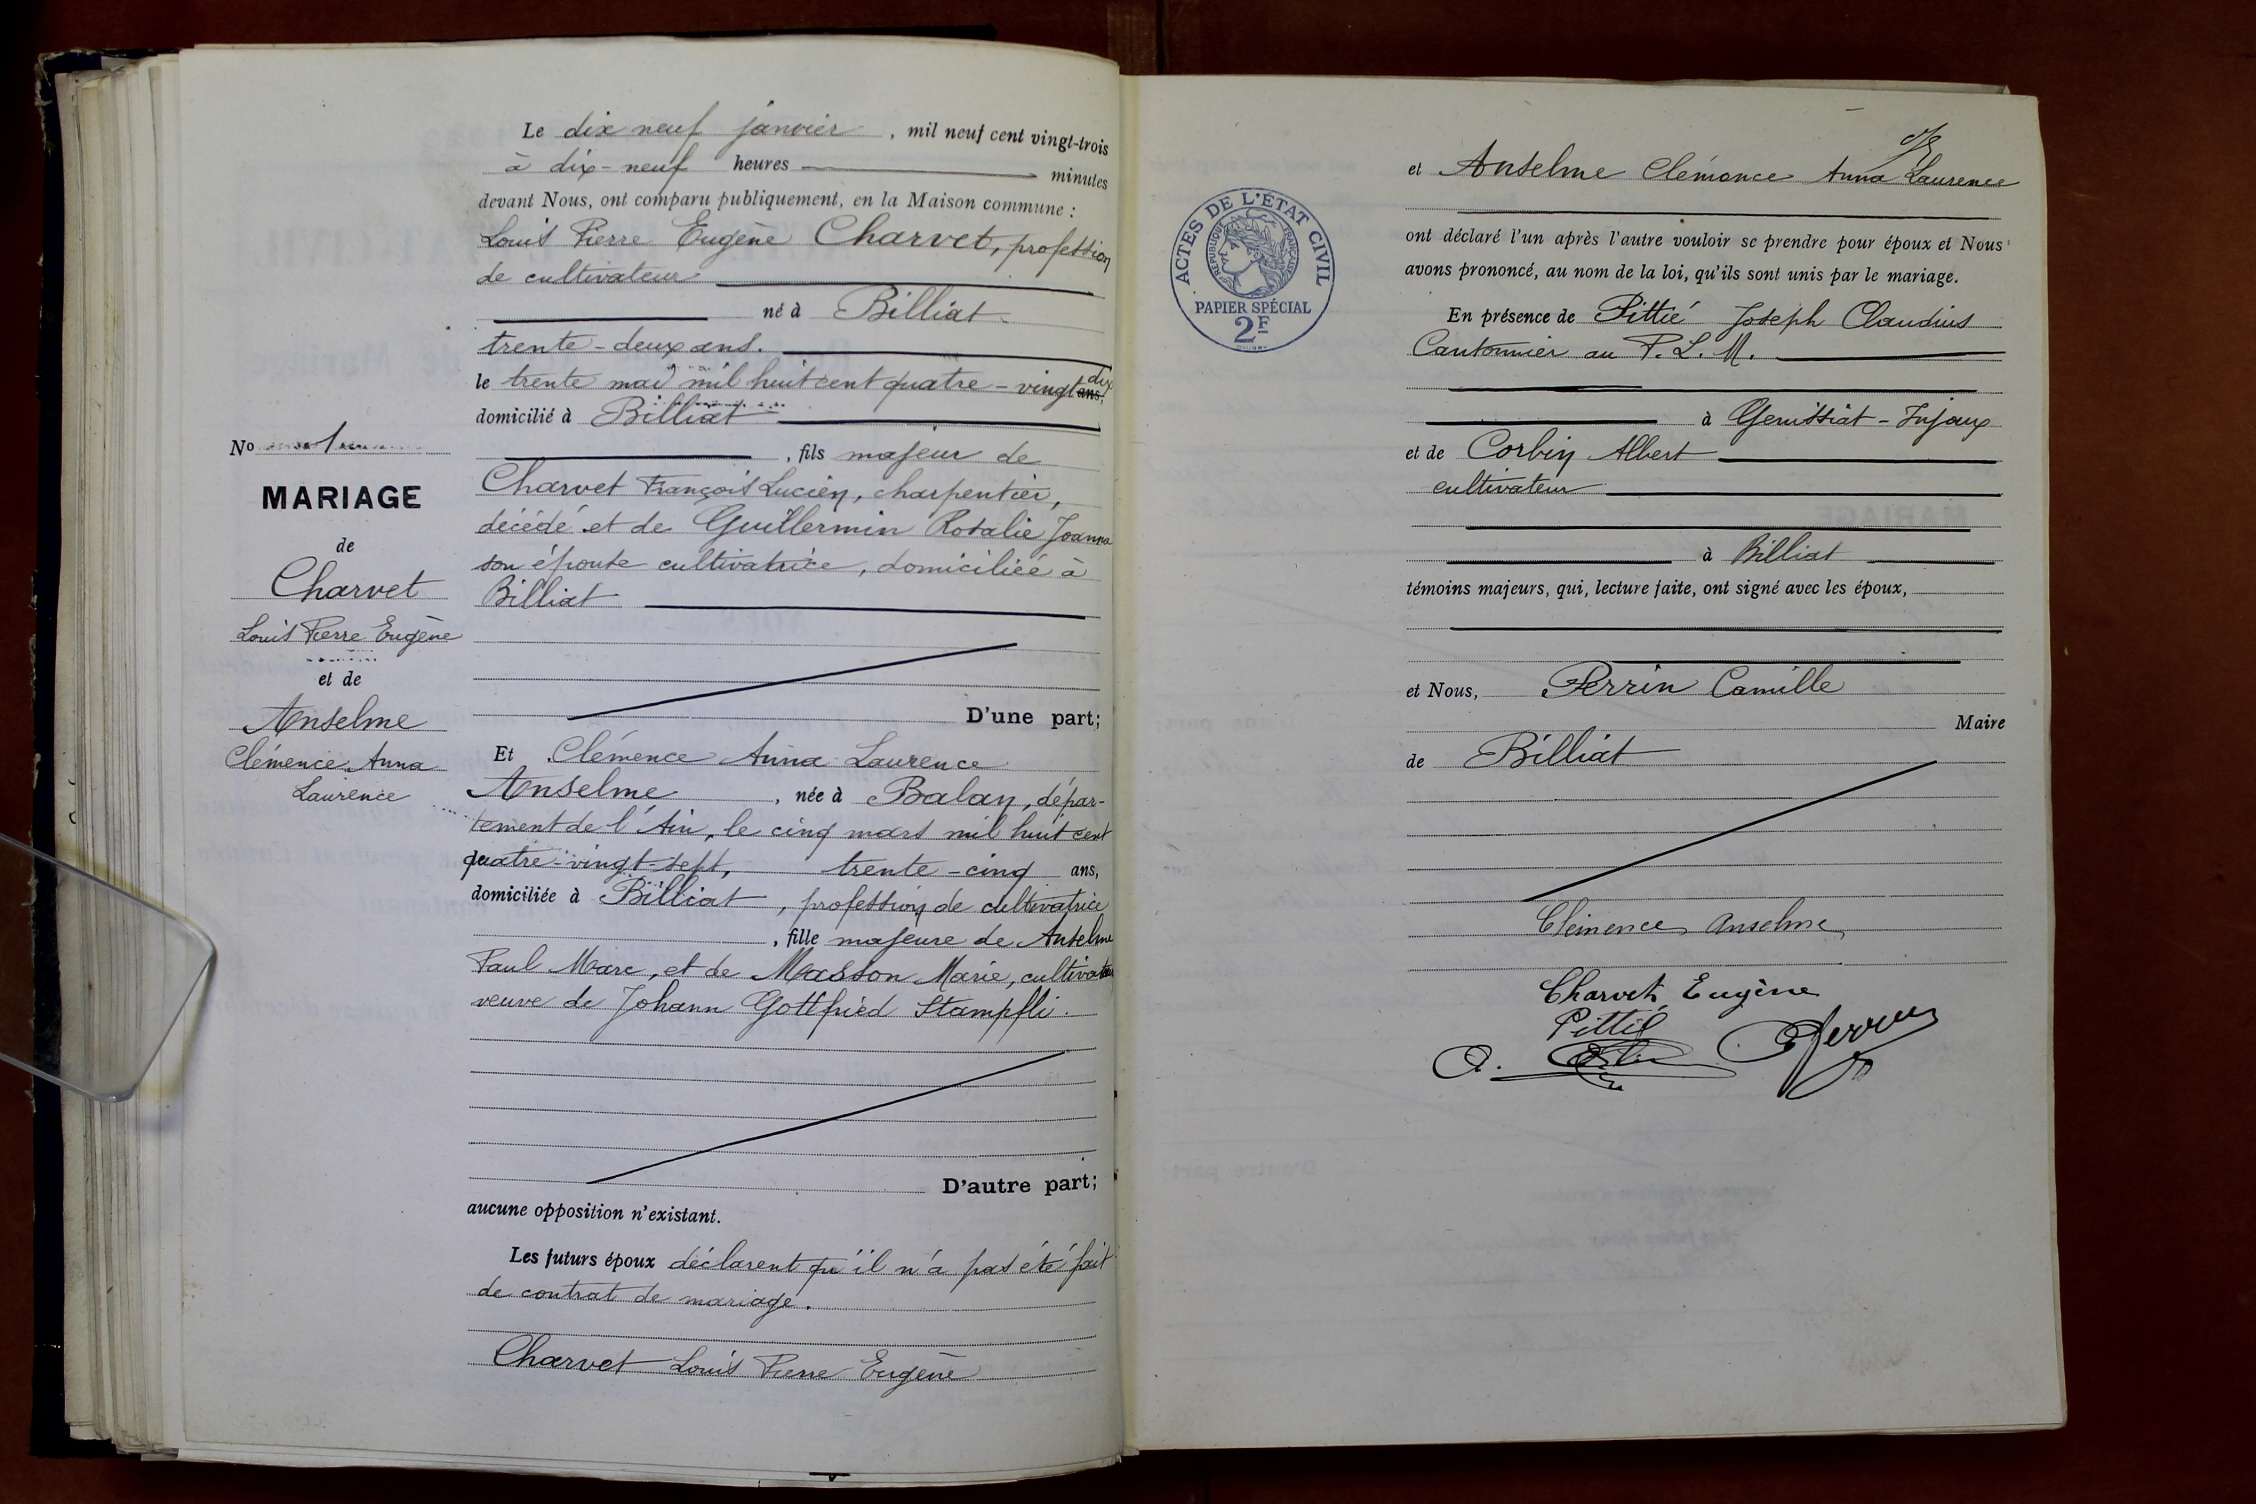 Le dix neuf janvier, mil neuf cent vingt-trois
à dix-neuf heures minutes
devant Nous, ont comparu publiquement, en la Maison commune :
Louis Pierre Eugène Charvet, profession
de cultivateur
né à Billiat
trente-deux ans.
le trente mai mil huit cent quatre-vingt dix
ans,
domicilié à Billiat
, fils majeur de
Charvet François Lucien, charpentier,
décédé et de Guillermin Rosalie Joanna
son épouse cultivatrice, domiciliée à
Billiat
D'une part;
Et Clémence Anna Laurence
Anselme, née à Balan, dépar-
tement de l'Ain, le cinq mars mil huit cent
quatre-vingt-sept, trente-cinq ans,
domiciliée à Billiat, profession de cultivatrice
, fille majeure de Anselme
Paul Marc, et de Masson Marie,
veuve de Johann Gottfried Stampfli.
D'autre part;
aucune opposition n'existant.
Les futurs époux déclarent qu'il n'a pas été fait
de contrat de mariage.
Charvet Louis Pierre Eugène
No 1
MARIAGE
de
Charvet
Louis Pierre Eugène
et de
Anselme
Clémence Anna
Laurence
ACTES DE L'ÉTAT CIVIL
RÉPUBLIQUE FRANÇAISE
PAPIER SPÉCIAL
2F
et Anselme Clémence Anna Laurence
ont déclaré l'un après l'autre vouloir se prendre pour époux et Nous
avons prononcé, au nom de la loi, qu'ils sont unis par le mariage.
En présence de Pittié Joseph Claudius
Cantonnier au P. L. M.
à Genissiat-Injoux
et de Corbin Albert
cultivateur
à Billiat
témoins majeurs, qui, lecture faite, ont signé avec les époux,
et Nous, Perrin Camille
Maire
de Billiat
Clémence Anselme
Charvet Eugène
Pittié
CPerrin